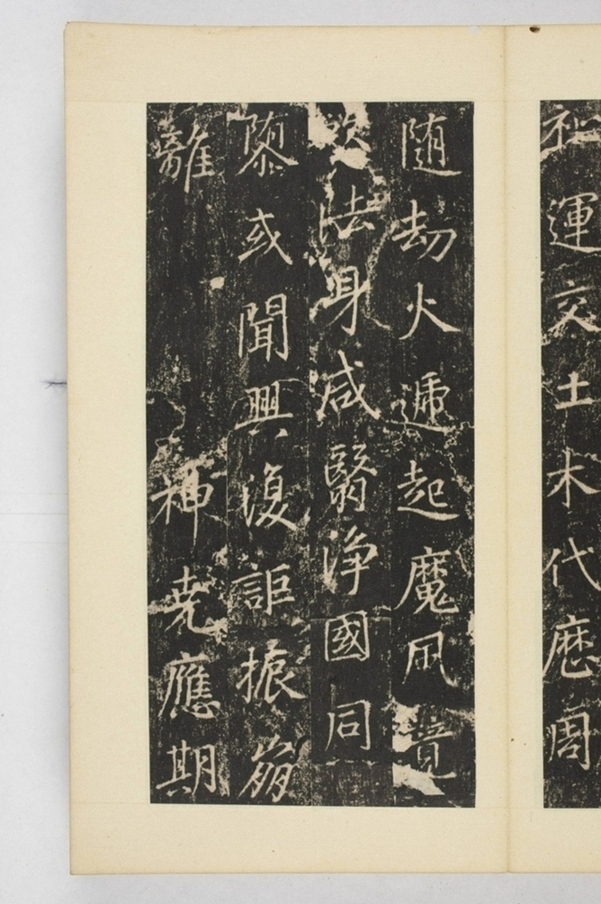 祀運交土木代歷周
随劫火遞起魔風竟
法身咸翳淨國同
或聞興復詎振崩
離　神堯應期